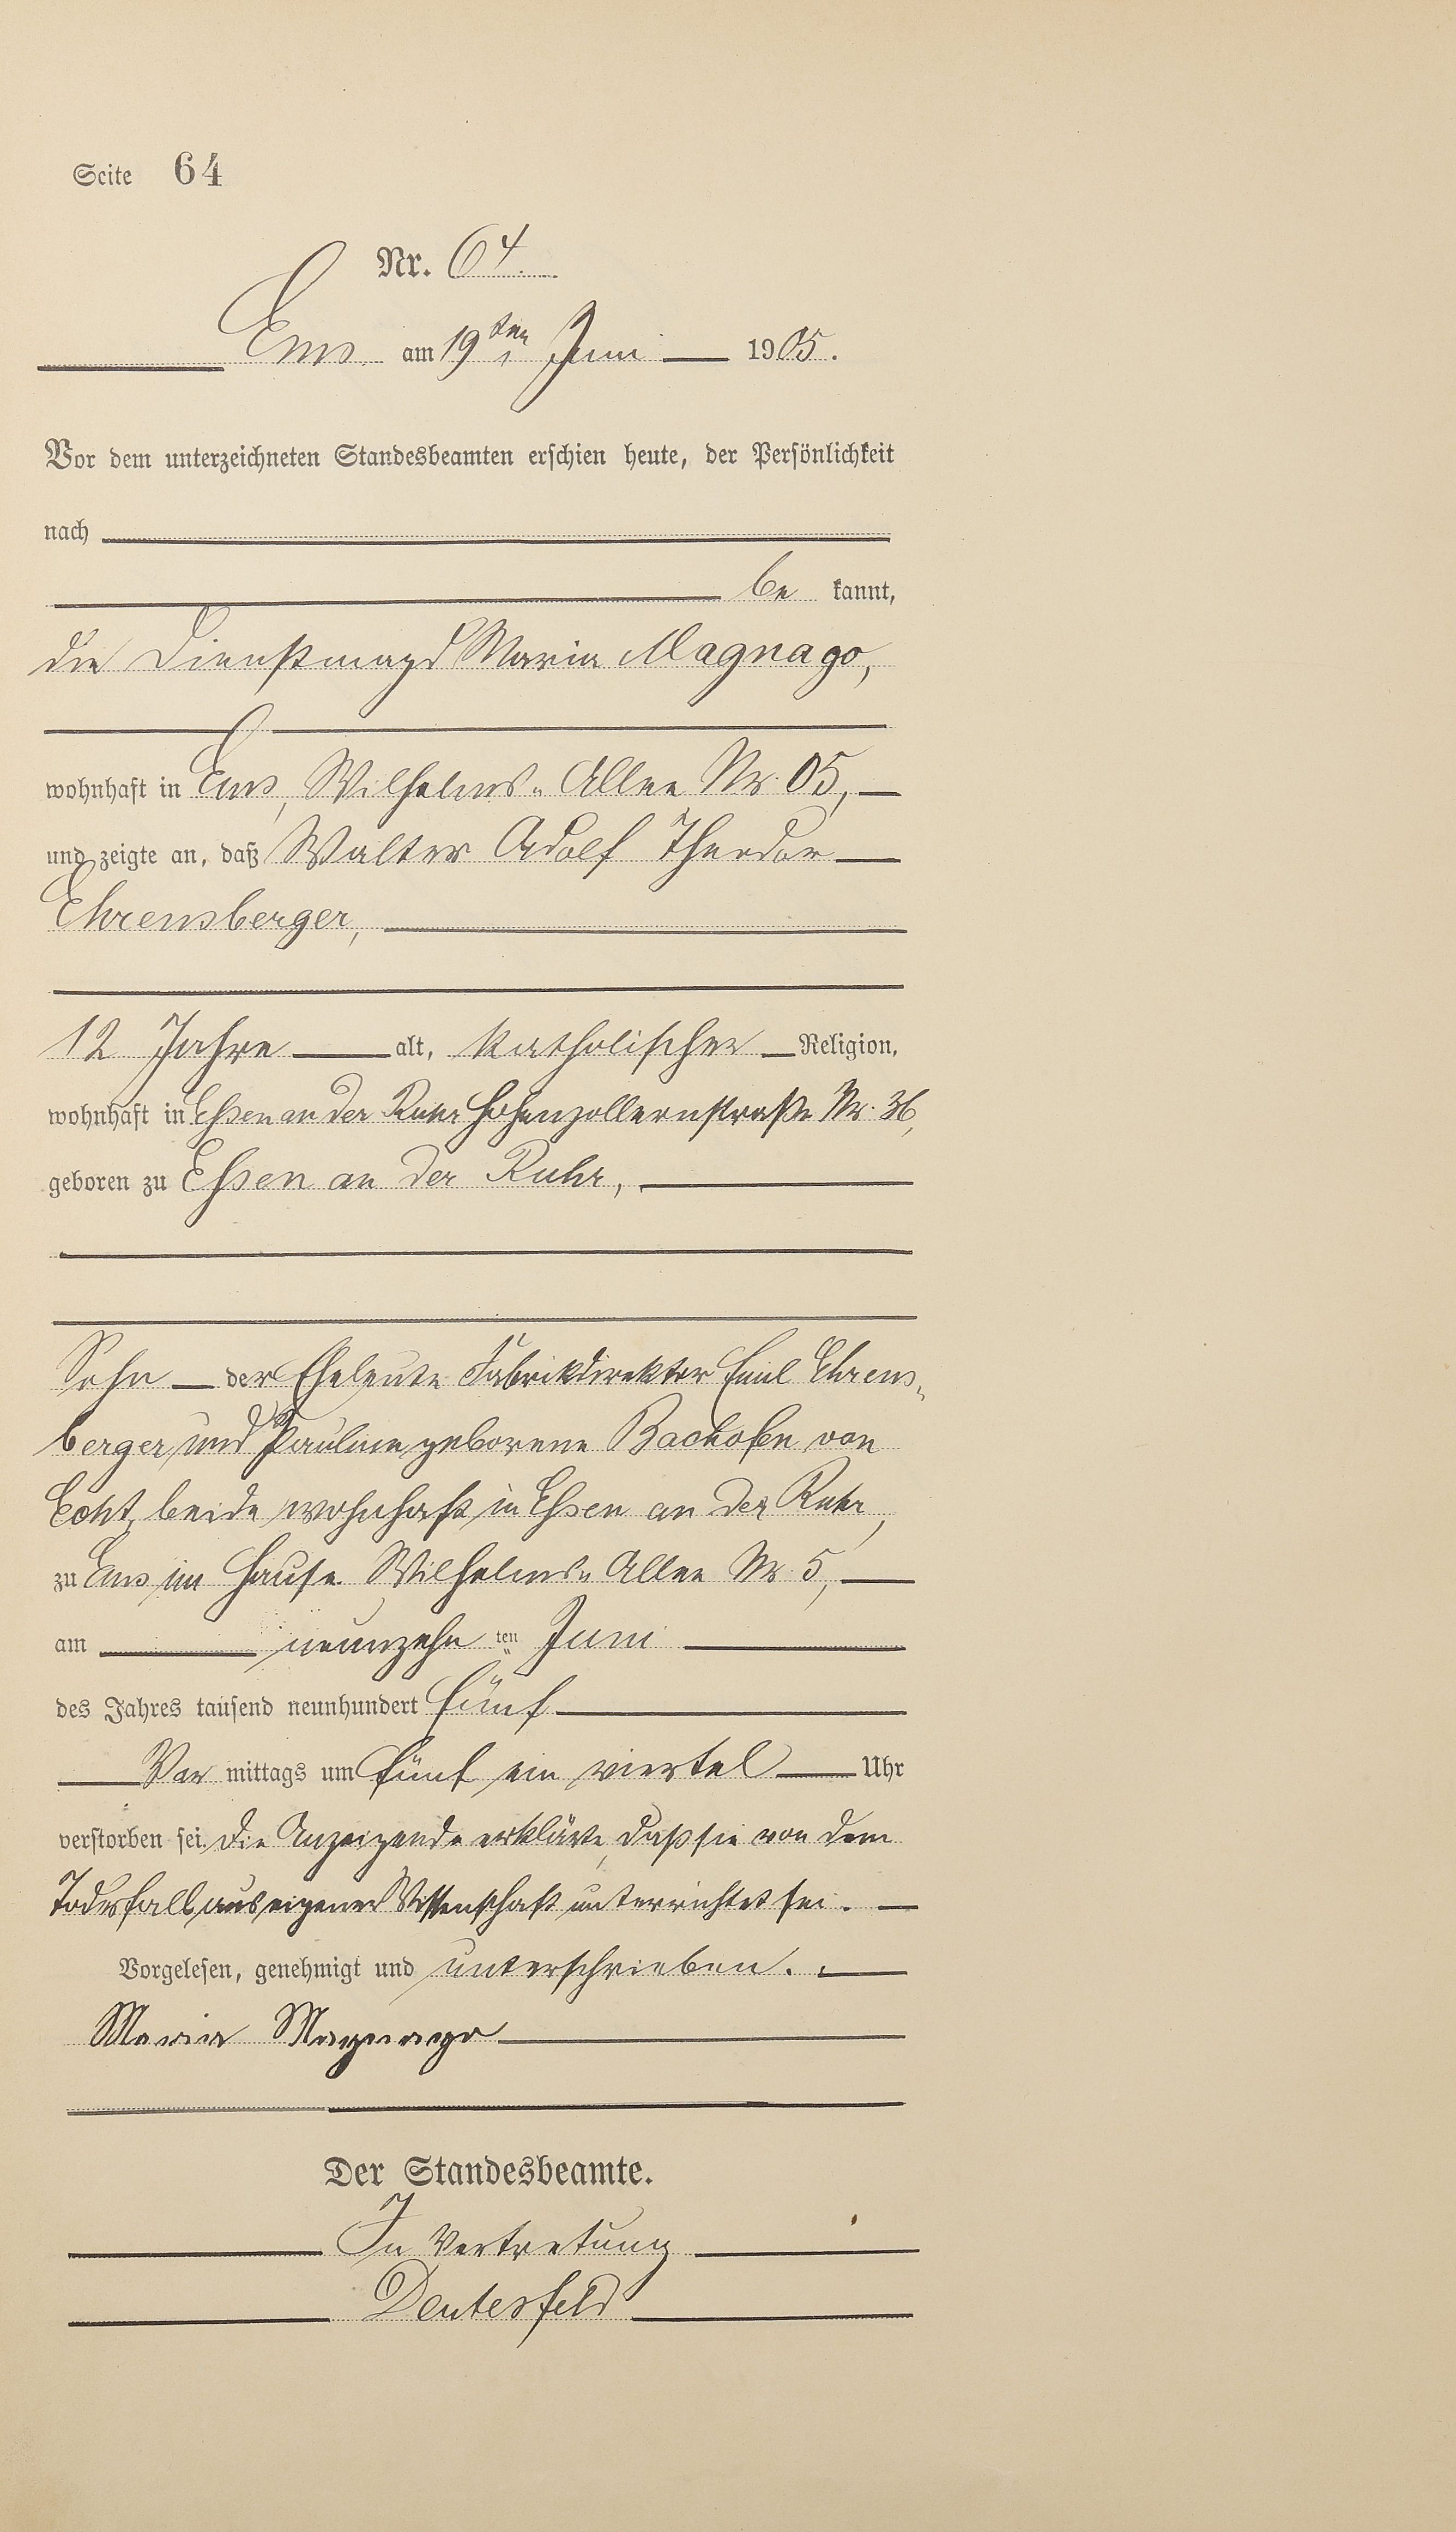 Seite 64
Nr. 64.
Ems am 19ten Juni 1905.
Vor dem unterzeichneten Standesbeamten erschien heute, der Persönlichkeit
nach
be kannt,
die Dienstmagd Maria Magnago,
wohnhaft in Ems, Wilhelms-Allee Nr. 05,
und zeigte an, daß Walter Adolf Theodor
Ehrensberger,
12 Jahre alt, katholischer Religion,
wohnhaft in Essen an der Ruhr Hohenzollernstraße Nr. 36,
geboren zu Essen an der Ruhr,
Sohn der Eheleute Fabrikdirektor Emil Ehrens-
berger und Pauline geborene Bachofen von
Echt, beide wohnhaft in Essen an der Ruhr,
zu Ems im Hause Wilhelms-Allee Nr. 5,
am neunzehn ten Juni
des Jahres tausend neunhundert fünf
Vor mittags um fünf ein viertel Uhr
verstorben sei. Die Anzeigende erklärte, daß sie von dem
Todesfall aus eigener Wissenschaft unterrichtet sei.
Vorgelesen, genehmigt und unterschrieben.
Maria Magnago
Der Standesbeamte.
In Vertretung
Deutesfeld